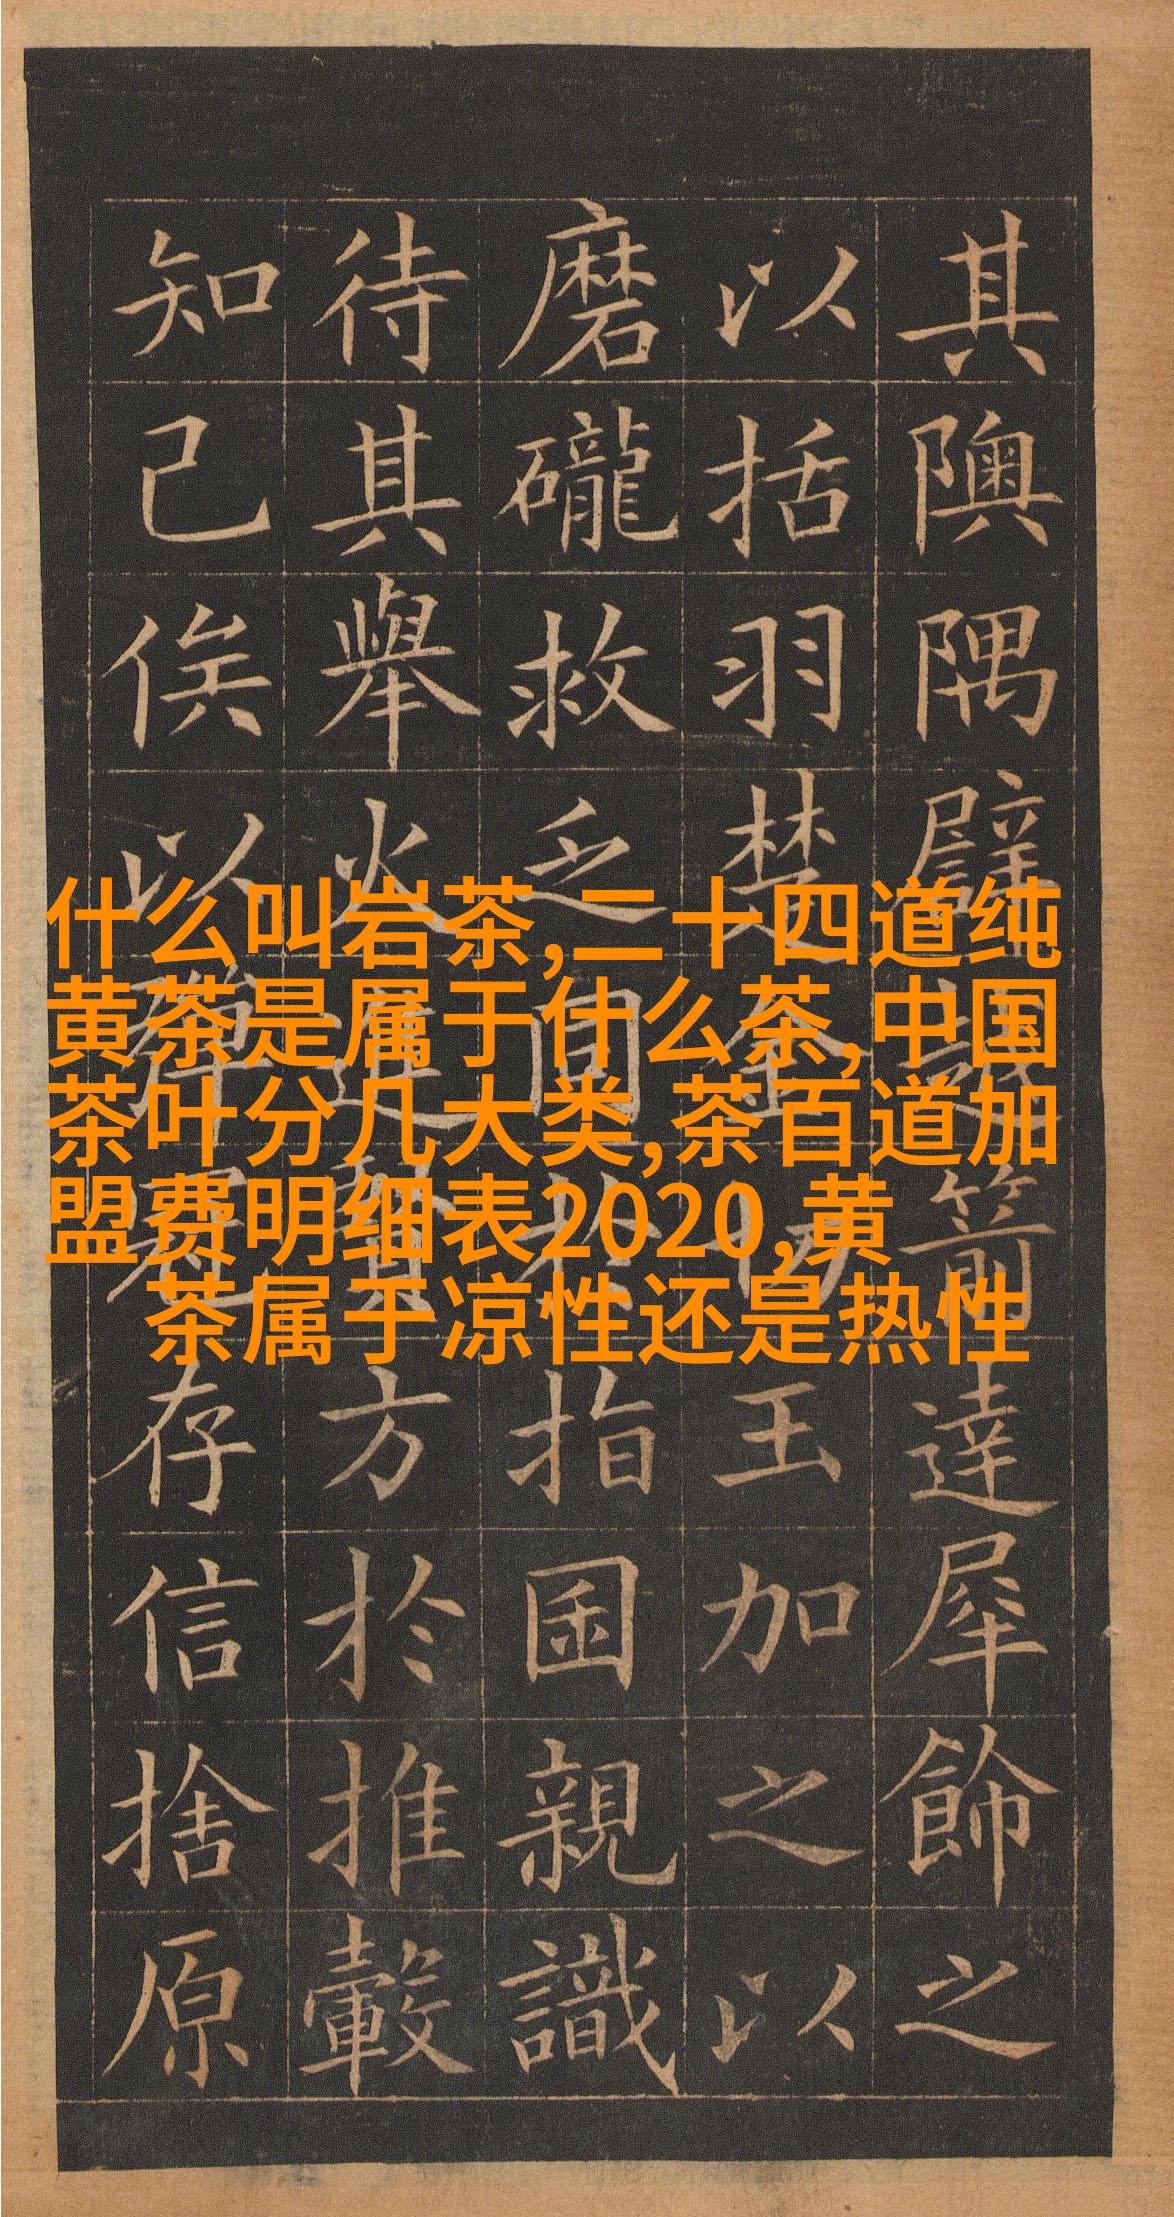 其隩隅譬越箭達犀飾之
以括羽楚金切玉加之以
磨礱救乏同於指囷親識
待其舉火進賢方於推轂
知己俟以彈冠存信捨原
什么叫岩茶,二十四道纯
黄茶是属于什么茶,中国
茶叶分几大类,茶百道加
盟费明细表2020,黄
茶属于凉性还是热性